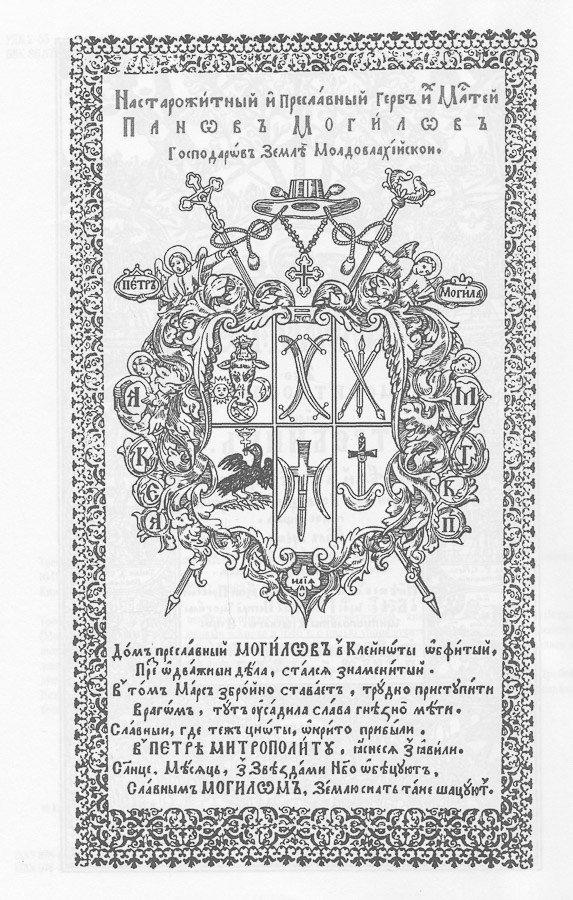 На старожи́тный и҆ Пресла́вный Гербъ и҆х Мл҃тей
Панѡвъ Моги́лѡвъ
Господарѡ́въ Землѣ̀ Молдовлахі́йскои.
ПЕТРЪ
МОГИЛА
А М
К Г
Є К
А П
До́мъ пресла́вный МОГИ́ЛѠВЪ в Клейнѡ́ты ѡ҆бфи́тый,
Пре́з ѿва́жныи дѣ́ла, ста́лся знамени́тый.
В то́м Ма́рсъ збро́йно става́етъ, тру́дно приступи́ти
Врагѡ́м, ту́тъ ѹ҆сади́ла сла́ва гнѣздо̀ мѣ́ти.
Сла́вныи, где те́жъ цнѡ́ты, ѡ҆кри́то прибы́ли.
В ПЕТРѢ МИТРОПОЛИ́ТУ, ꙗ҆́снеся з҆ꙗви́ли.
Сл҃нце, Мѣ́сяць, з Звѣзда́ми Нб҃о ѡ҆бѣцу́ютъ,
Сла́вным МОГИ́ЛѠМЪ, Зе́млю